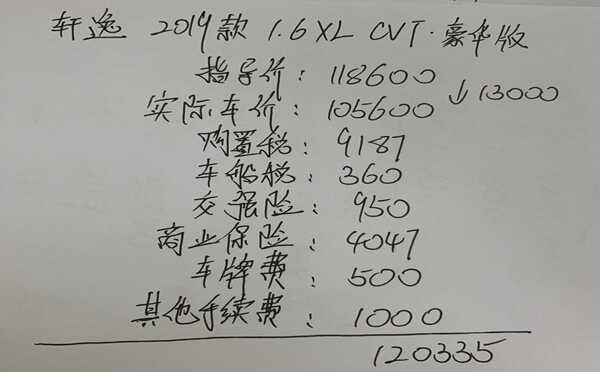 轩逸 2019款 1.6XL CVT·豪华版
指导价：118600
实际车价：105600 ↓13000
购置税：9187
车船税：360
交强险：950
商业保险：4047
车牌费：500
其他手续费：1000
120335